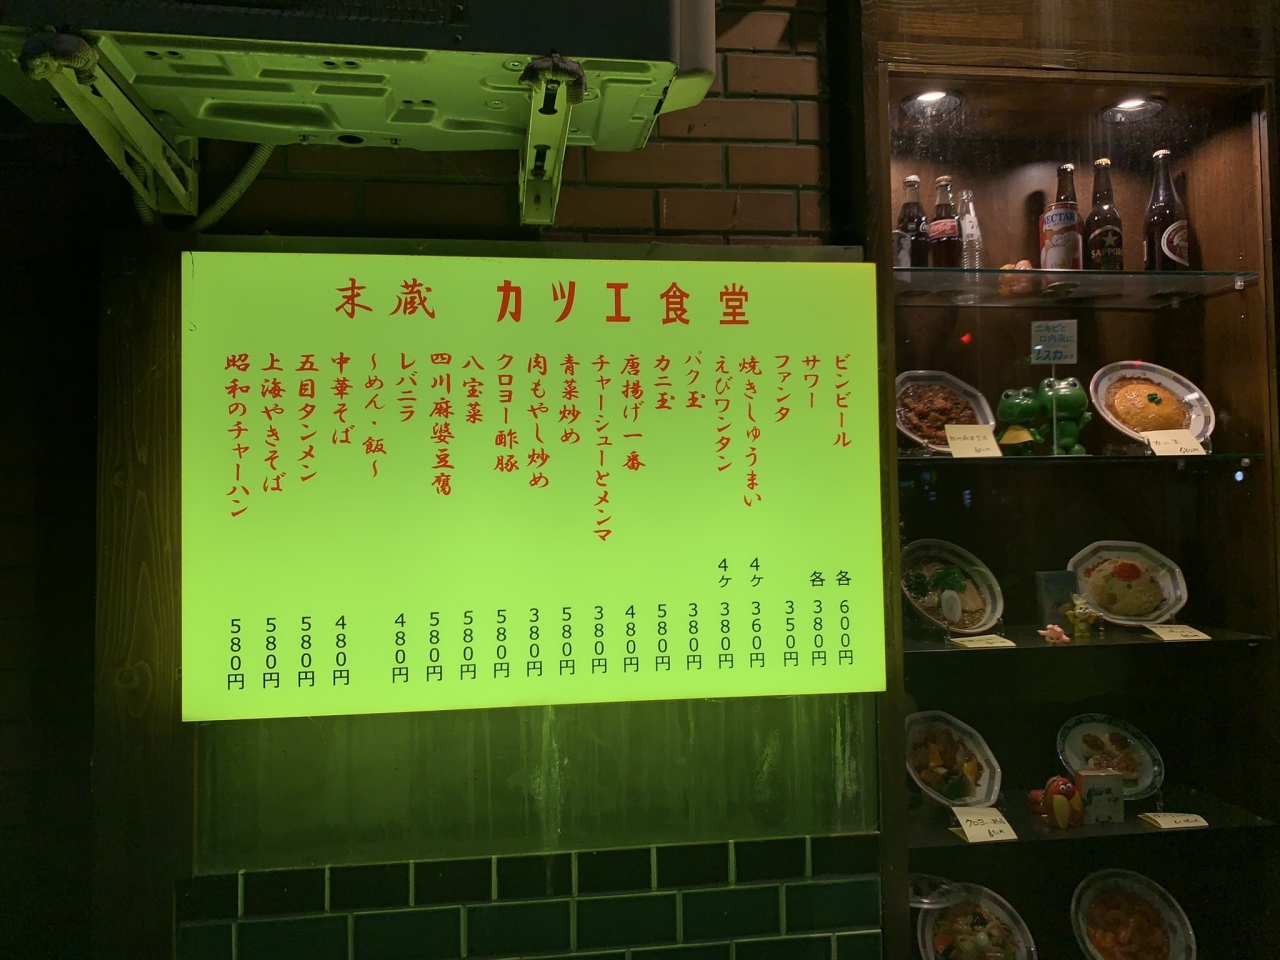 末蔵 カツエ食堂
ビンビール 各 600円
サワー 各 380円
ファンタ 350円
焼きしゅうまい 4ケ 360円
えびワンタン 4ケ 380円
パク玉 380円
カニ玉 580円
唐揚げ一番 480円
チャーシューとメンマ 380円
青菜炒め 580円
肉もやし炒め 380円
クロヨー酢豚 580円
八宝菜 580円
四川麻婆豆腐 580円
レバニラ 480円
〜めん・飯〜
中華そば 480円
五目タンメン 580円
上海やきそば 580円
昭和のチャーハン 580円
NECTAR
SAPPORO
ニキビと
口内炎に
カニ玉